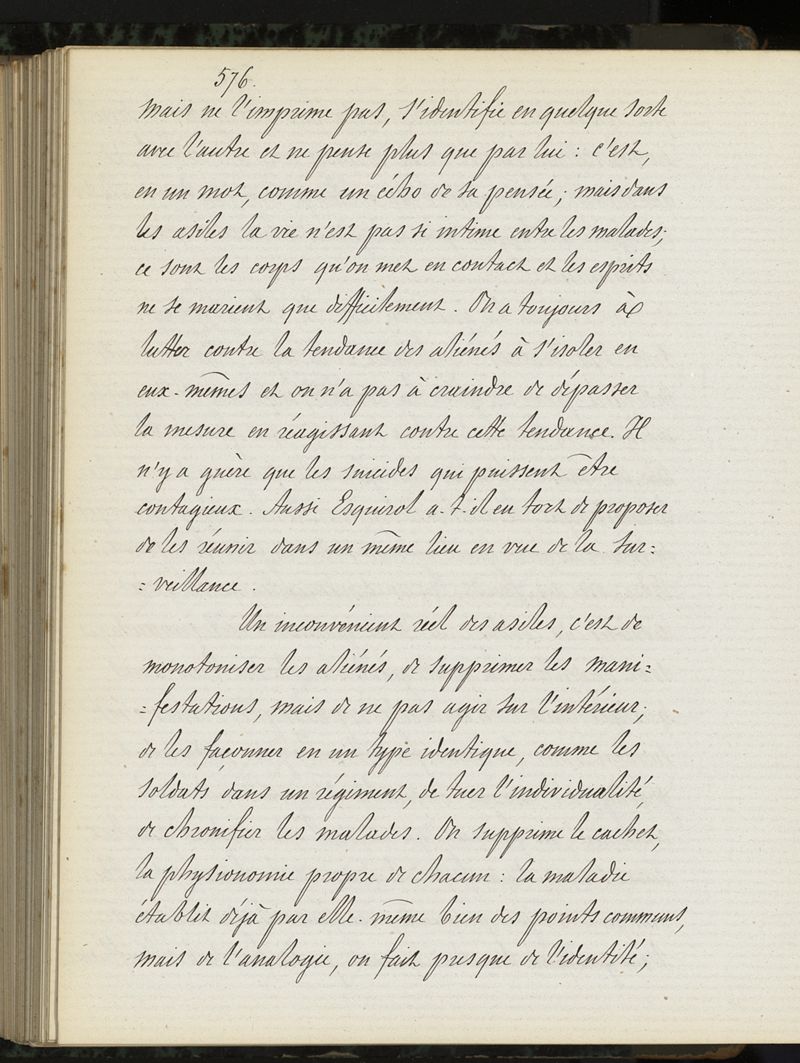 576.
mais ne l'imprime pas, s'identifie en quelque sorte
avec l'autre et ne pense plus que par lui : c'est,
en un mot, comme un écho de sa pensée ; mais dans
les asiles la vie n'est pas si intime entre les malades ;
ce sont les corps qu'on met en contact et les esprits
ne se marient que difficilement. On a toujours à
lutter contre la tendance des aliénés à s'isoler en
eux-mêmes et on n'a pas à craindre de dépasser
la mesure en réagissant contre cette tendance. Il
n'y a guère que les suicides qui puissent être
contagieux. Aussi Esquirol a-t-il eu tort de proposer
de les réunir dans un même lieu en vue de la sur=
=veillance.
Un inconvénient réel des asiles, c'est de
monotoniser les aliénés, de supprimer les mani=
=festations, mais de ne pas agir sur l'intérieur ;
de les façonner en un type identique, comme les
soldats dans un régiment, de tuer l'individualité,
de chronifier les malades. On supprime le cachet,
la physionomie propre de chacun : la maladie
établit déjà par elle-même bien des points communs,
mais de l'analogie, on fait presque de l'identité ;